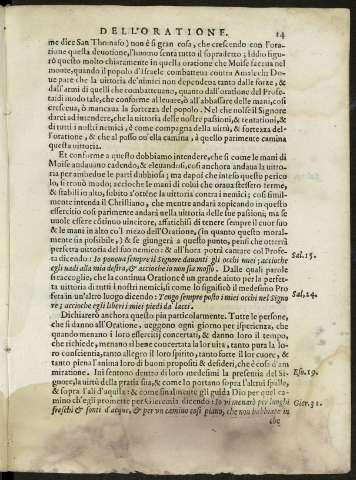 DELL'ORATIONE. 14
me dice San Thomaso) non è gran cosa, che crescendo con l'ora-
tione questa deuotione, l'huomo senta tutto il sopradetto; Iddio figu-
rò questo molto chiaramente in quella oratione che Moise faceua nel
monte, quando il popolo d'Israele combatteua contra Amalech: Do
ue pare che la uittoria de' nimici non dependeua tanto dalle forze, &
dall'armi di quelli che combatteuano, quanto dall'oratione del Profe-
ta: di modo tale, che conforme al leuare, ò all'abbassare delle mani, cosi
cresceua, ò mancaua la fortezza del popolo. Nel che uolse il Signore
darci ad intendere, che la uittoria delle nostre passioni, & tentationi, &
di tutti i nostri nemici, è come compagna della uirtù, & fortezza del-
l'oratione, & che al passo ch'ella camina, à quello parimente camina
questa uittoria.
Et conforme a questo dobbiamo intendere, che si come le mani di
Moise andauano cadendo, & eleuandosi, cosi anchora andaua la uitto-
ria per ambedue le parti dubbiosa; ma dapoi che inteso questo perico
lo, si trouò modo; accioche le mani di colui che oraua stessero ferme,
& stabili in alto, subito s'ottēne la uittoria contra i nemici; cosi simil-
mente intenda il Christiano, che mentre andarà zopicando in questo
essercitio cosi parimente andarà nella uittoria delle sue passioni, ma se
uuole essere côtinuo uincitore, affatichisi di tenere sempre il cuor suo
& le mani in alto co'l mezo dell'Oratione, (in quanto questo moral-
mente sia possibile,) & se giungerà a questo punto, pensi che otterrà
perfetta uittoria del suo nemico: & all'hora potrà cantare col Profe-
ta dicendo: Io poneua sempre il Signore dauanti gli occhi miei; accioche Sal. 15.
egli uada alla mia destra, & accioche io non sia mosso. Dalle quali parole
si raccoglie, che la continua Oratione è un grande aiuto per la perfet-
ta uittoria di tutti i nemici, si come lo significò il medesimo Pro
feta in un'altro luogo dicendo: Tengo sempre posto i miei occhi nel Signo Sal. 24.
re; accioche egli liberi i miei piedi da lacci.
Dichiarerò anchora questo più particolarmente. Tutte le persone,
che si danno all'Oratione, ueggono ogni giorno per isperienza, che
quando menano i loro essercitij concertati, & danno loro il tempo,
che richiede, menano si bene concertata la lor uita, tanto pura la lo-
ro conscientia, tanto allegro il loro spirito, tanto forte il lor cuore, &
tanto piena l'anima loro di buoni propositi & desideri, che è cosa d'am
miratione. Iui sentono dentro di loro medesimi la presentia del Si- Eso. 19.
gnore, la uirtù della gratia sua, & come lo portano sopra l'altrui spalle,
& sopra l'ali d'aquila: & come finalmente egli gli guida Dio per quel ca-
mino ch'egli promette per Gieremia dicendo: Io vi menarò per luoghi Gier. 31.
freschi & fonti d'acque, & per un camino così piano, che non habbiate in
che